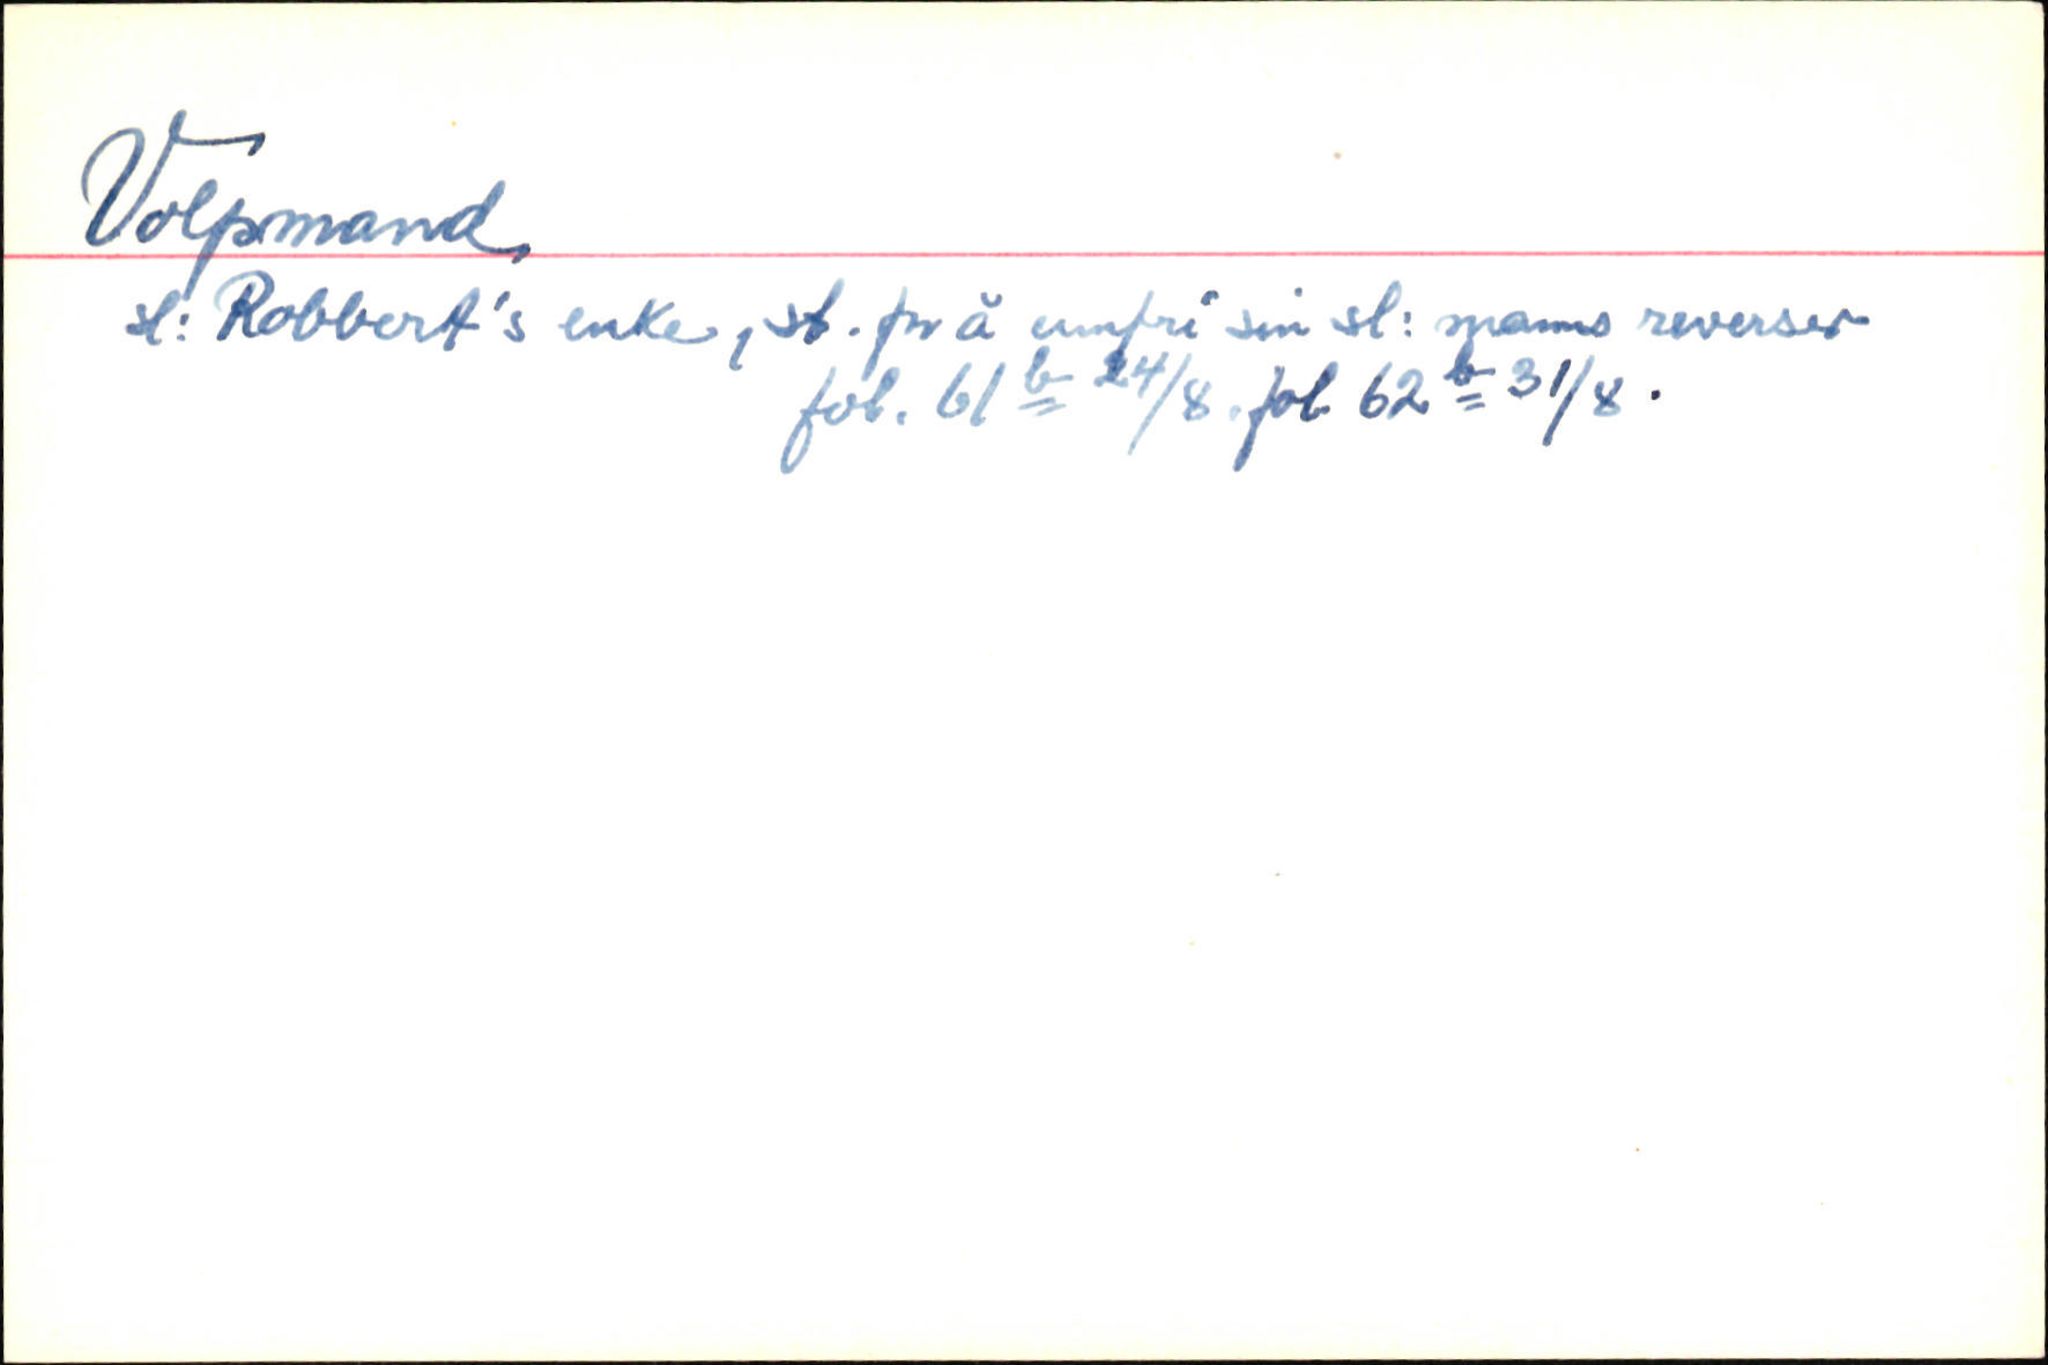 Volpmand,
sl: Robbert's enke, st. for å innfri sin sl: manns reverser
fol. 61 b 24/8. fol. 62 b 31/8.